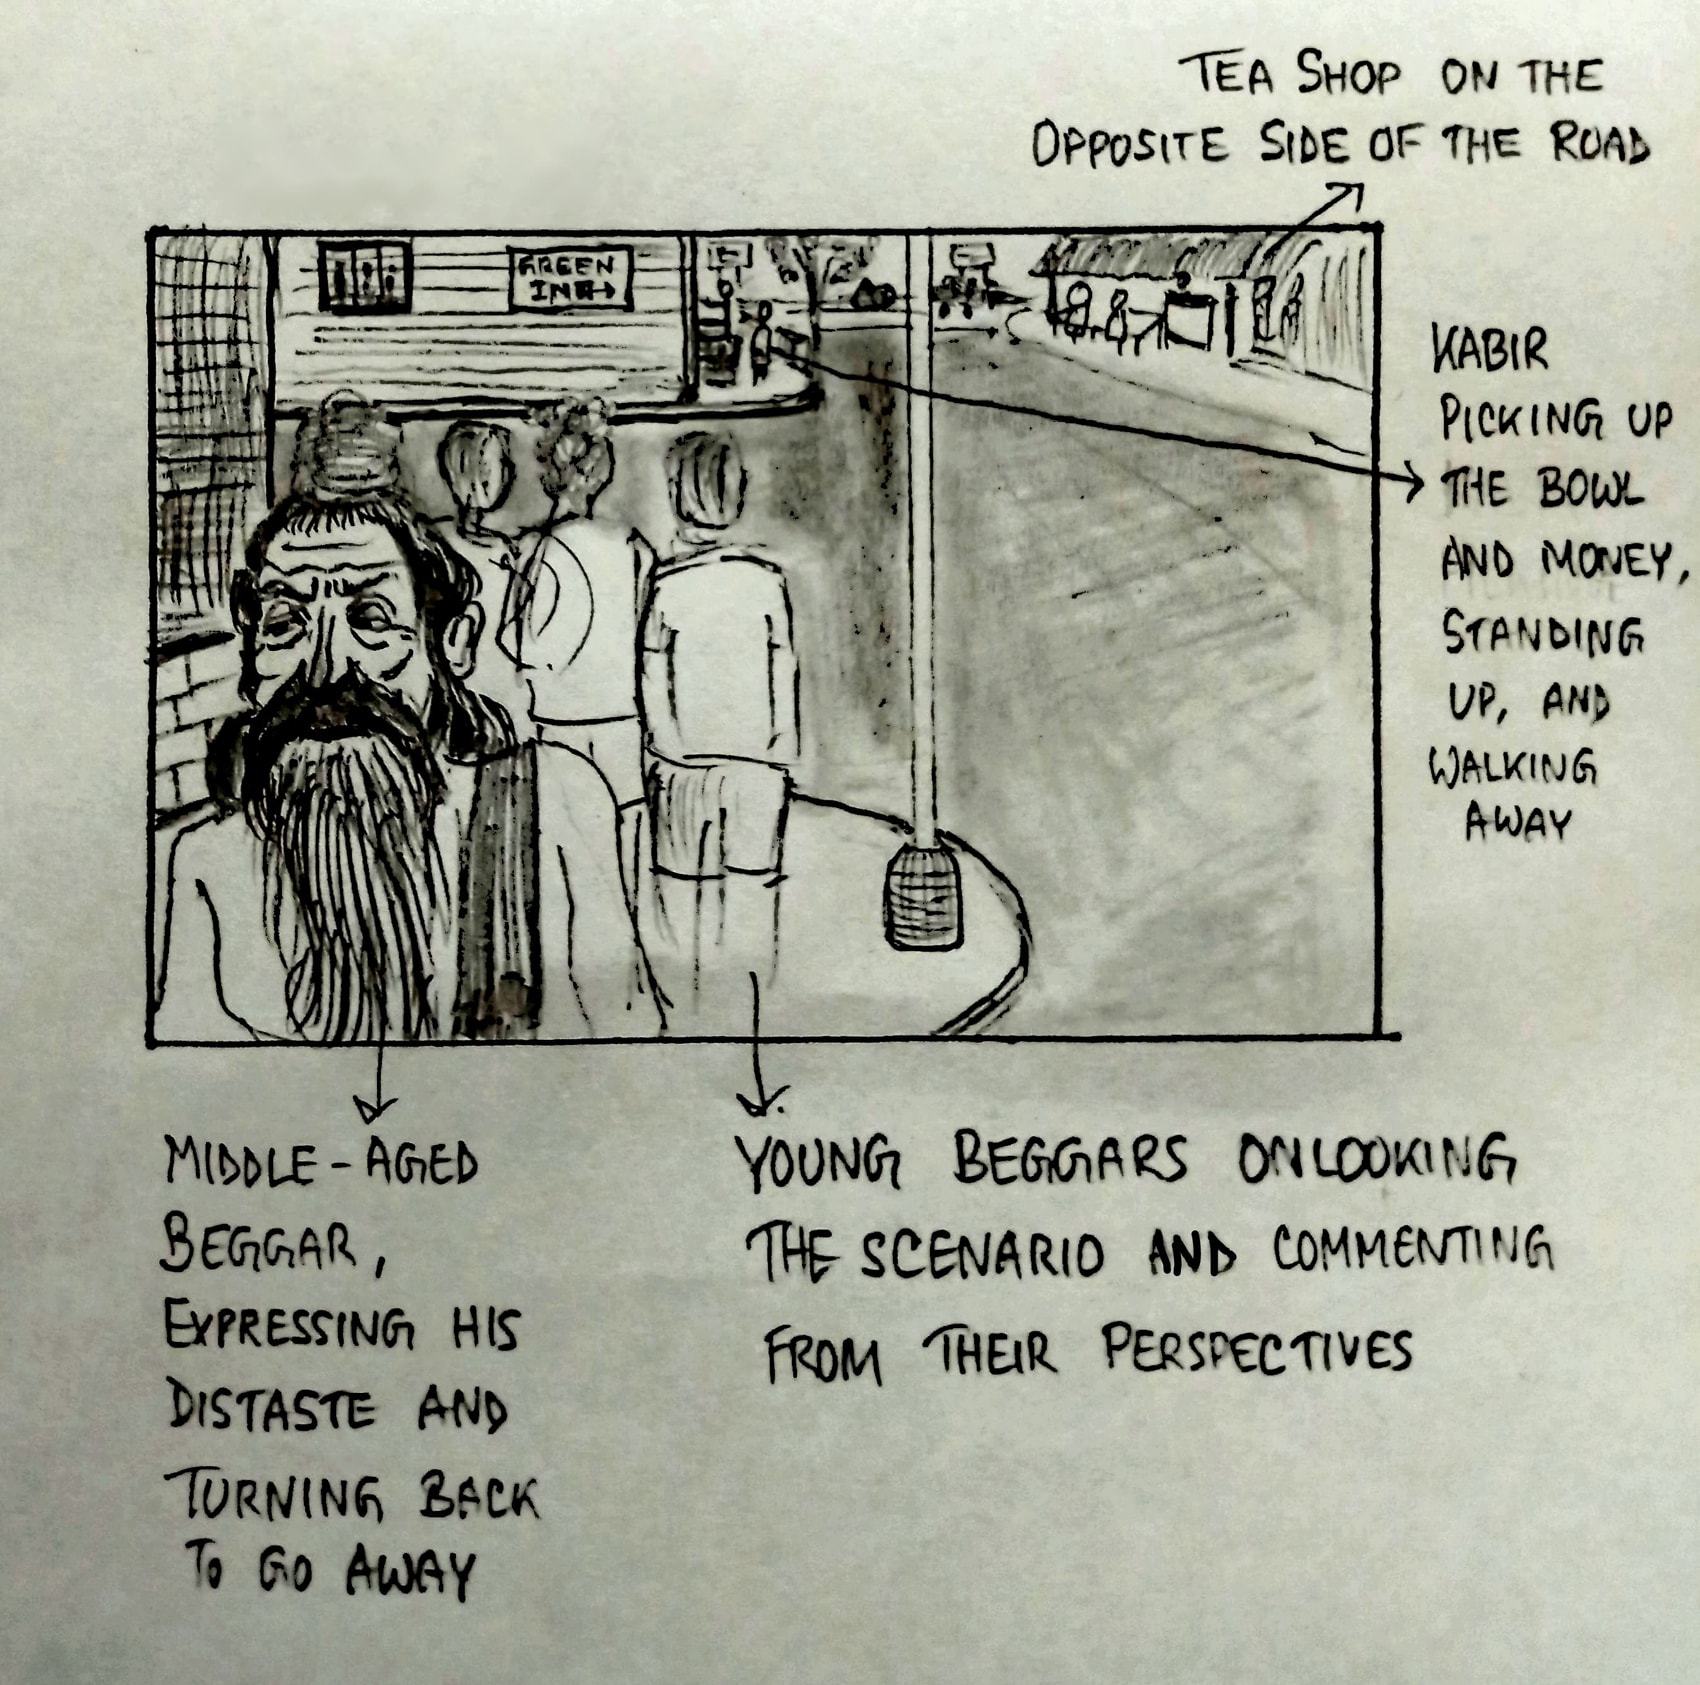 TEA SHOP ON THE
OPPOSITE SIDE OF THE ROAD
GREEN
INN→
KABIR
PICKING UP
THE BOWL
AND MONEY,
STANDING
UP, AND
WALKING
AWAY
MIDDLE-AGED
BEGGAR,
EXPRESSING HIS
DISTASTE AND
TURNING BACK
TO GO AWAY
YOUNG BEGGARS ONLOOKING
THE SCENARIO AND COMMENTING
FROM THEIR PERSPECTIVES